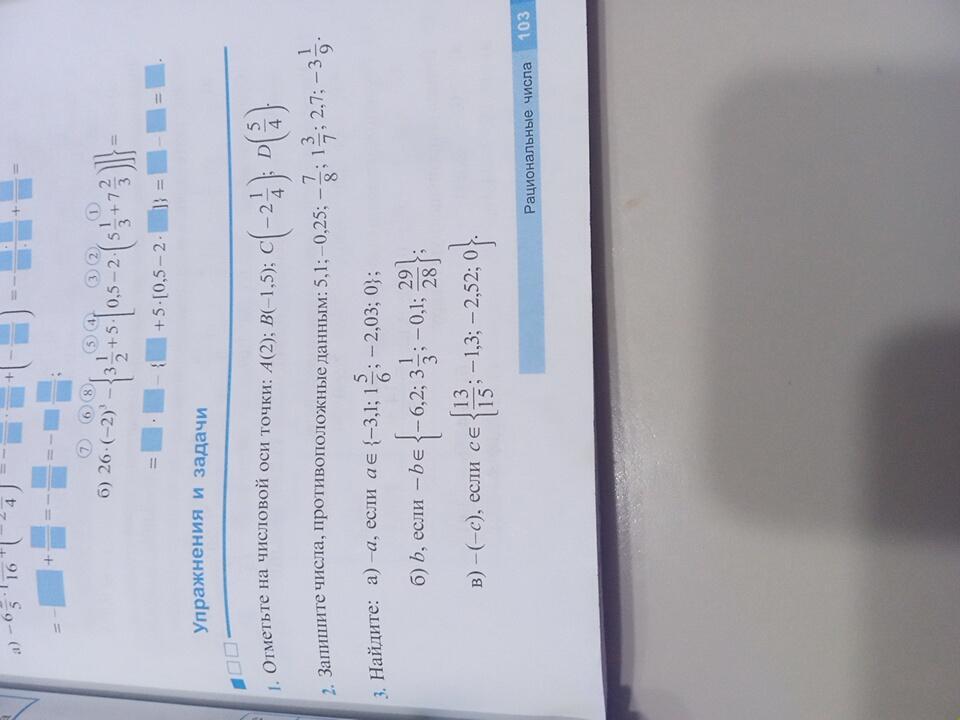 а) −6
= − + = − = − = − ;
⑦ ⑥ ⑧ ⑤ ④ ③ ② ①
б) 26·(−2)³ − {3 1/2 + 5·[0,5 − 2·(5 1/3 + 7 2/3)]} =
= · − { + 5·[0,5 − 2· ]} = − = .
Упражнения и задачи
1. Отметьте на числовой оси точки: A(2); B(−1,5); C(−2 1/4); D(5/4).
2. Запишите числа, противоположные данным: 5,1; −0,25; −7/8; 1 3/7; 2,7; −3 1/9.
3. Найдите: а) −a, если a ∈ {−3,1; 1 5/6; −2,03; 0};
б) b, если −b ∈ {−6,2; 3 1/3; −0,1; 29/28};
в) −(−c), если c ∈ {13/15; −1,3; −2,52; 0}.
Рациональные числа 103